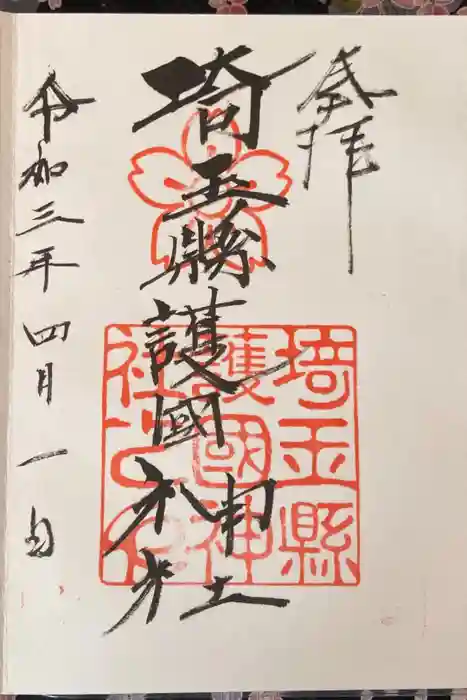 奉拝
埼玉縣護國神社
埼玉縣
護國神
社之印
令和三年四月一日